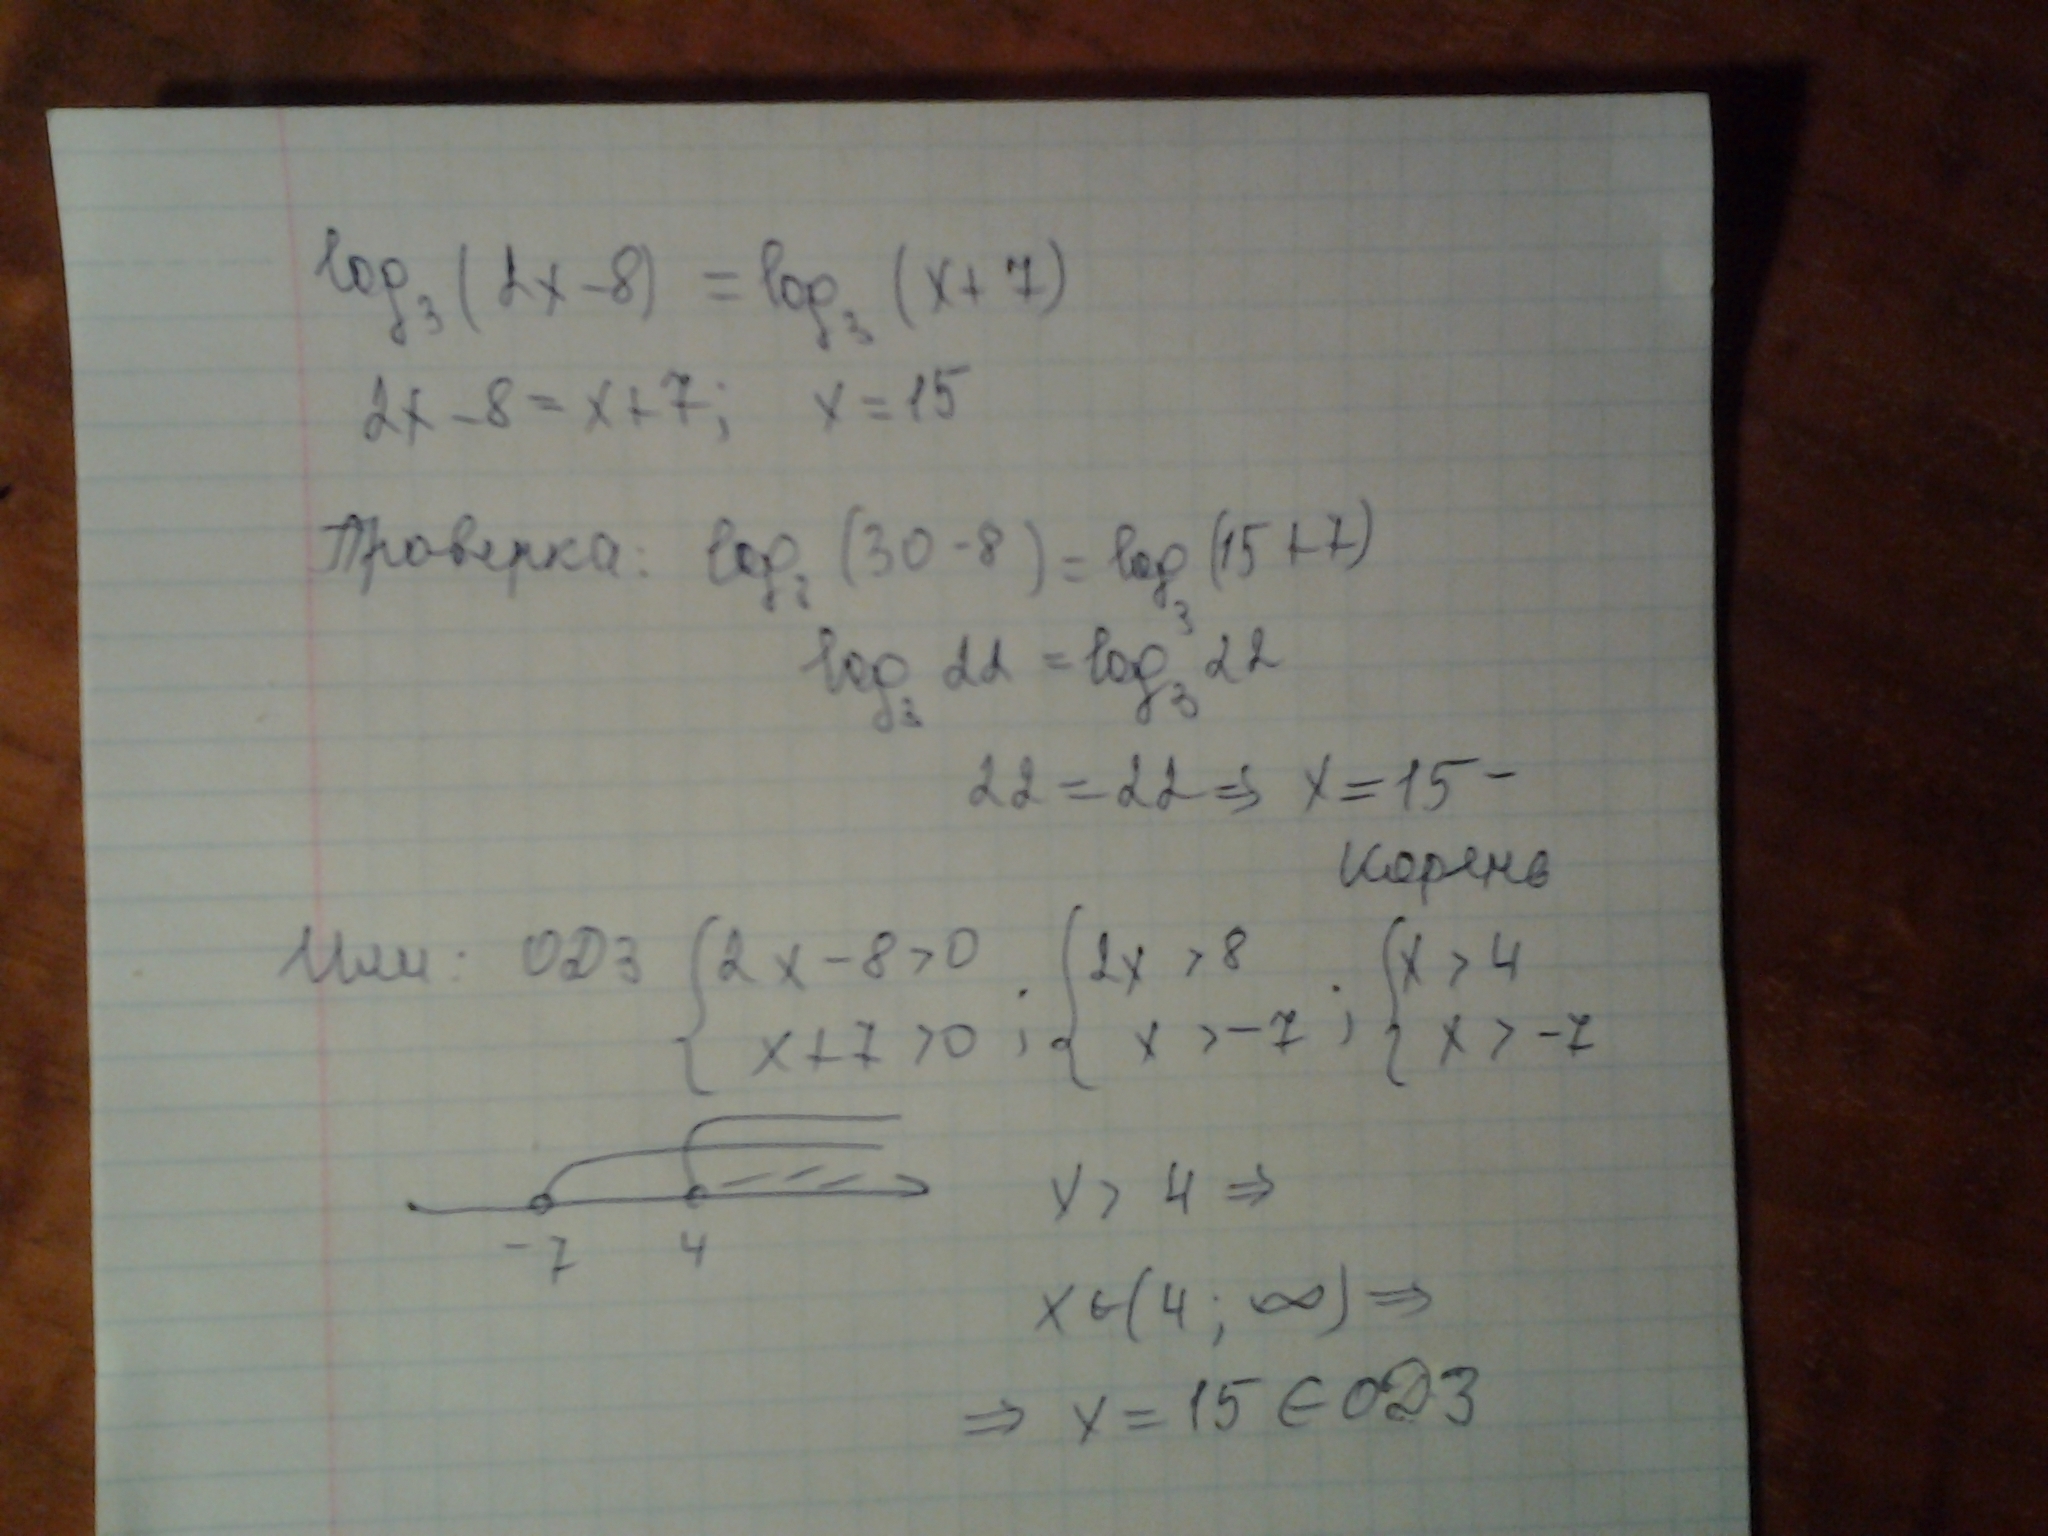 log₃(2x-8) = log₃(x+7)
2x-8=x+7; x=15
Проверка: log₃(30-8)=log₃(15+7)
log₃22=log₃22
22=22⇒ x=15-
корень
Или: ОДЗ {2x-8>0 ; {2x>8 ; {x>4
x+7>0 x>-7 x>-7
x>4⇒
-7 4
x∈(4;∞)⇒
⇒ x=15∈ОДЗ